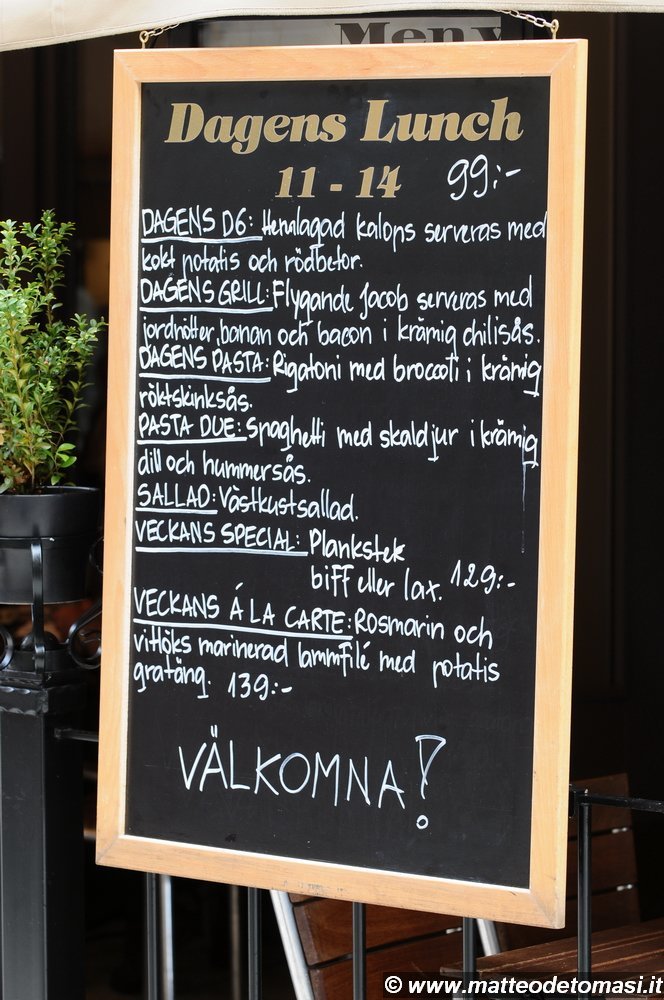 Meny
Dagens Lunch
11 - 14 99:-
DAGENS D6: Hemlagad kalops serveras med
kokt potatis och rödbetor.
DAGENS GRILL: Flygande Jacob serveras med
jordnötter, banan och bacon i krämig chilisås.
DAGENS PASTA: Rigatoni med broccoti i krämig
röktskinksås.
PASTA DUE: Spaghetti med skaldjur i krämig
dill och hummersås.
SALLAD: Västkustsallad.
VECKANS SPECIAL: Plankstek
biff eller lax. 129:-
VECKANS Á LA CARTE: Rosmarin och
vitlöks marinerad lammfilé med potatis
gratäng. 139:-
VÄLKOMNA!
© www.matteodetomasi.it